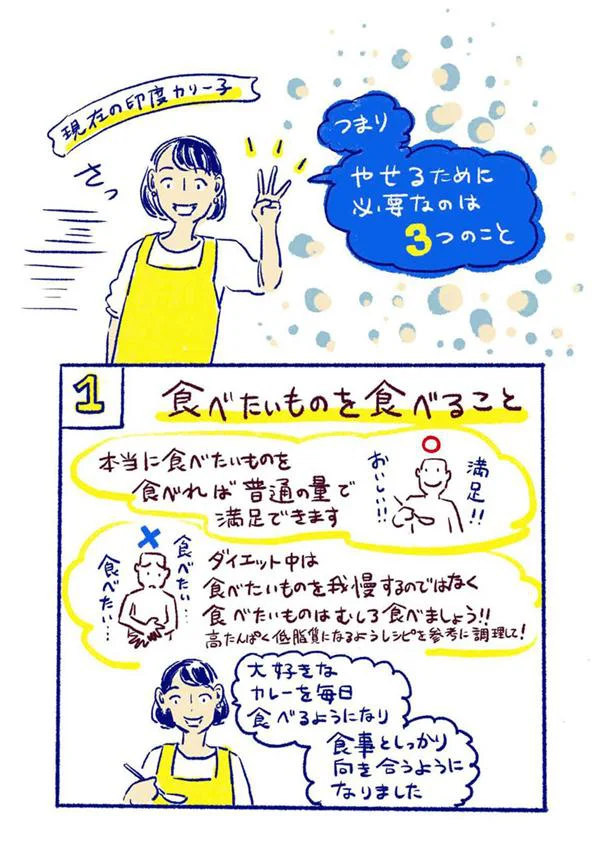 現在の印度カリー子
さっ
つまり
やせるために
必要なのは
3つのこと
1
食べたいものを食べること
本当に食べたいものを
食べれば普通の量で
満足できます
満足!!
おいしい!!!
食べたい…
食べたい…
ダイエット中は
食べたいものを我慢するのではなく
食べたいものはむしろ食べましょう!!
高たんぱく低脂質になるようレシピを参考に調理して!
大好きな
カレーを毎日
食べるようになり
食事としっかり
向き合うように
なりました